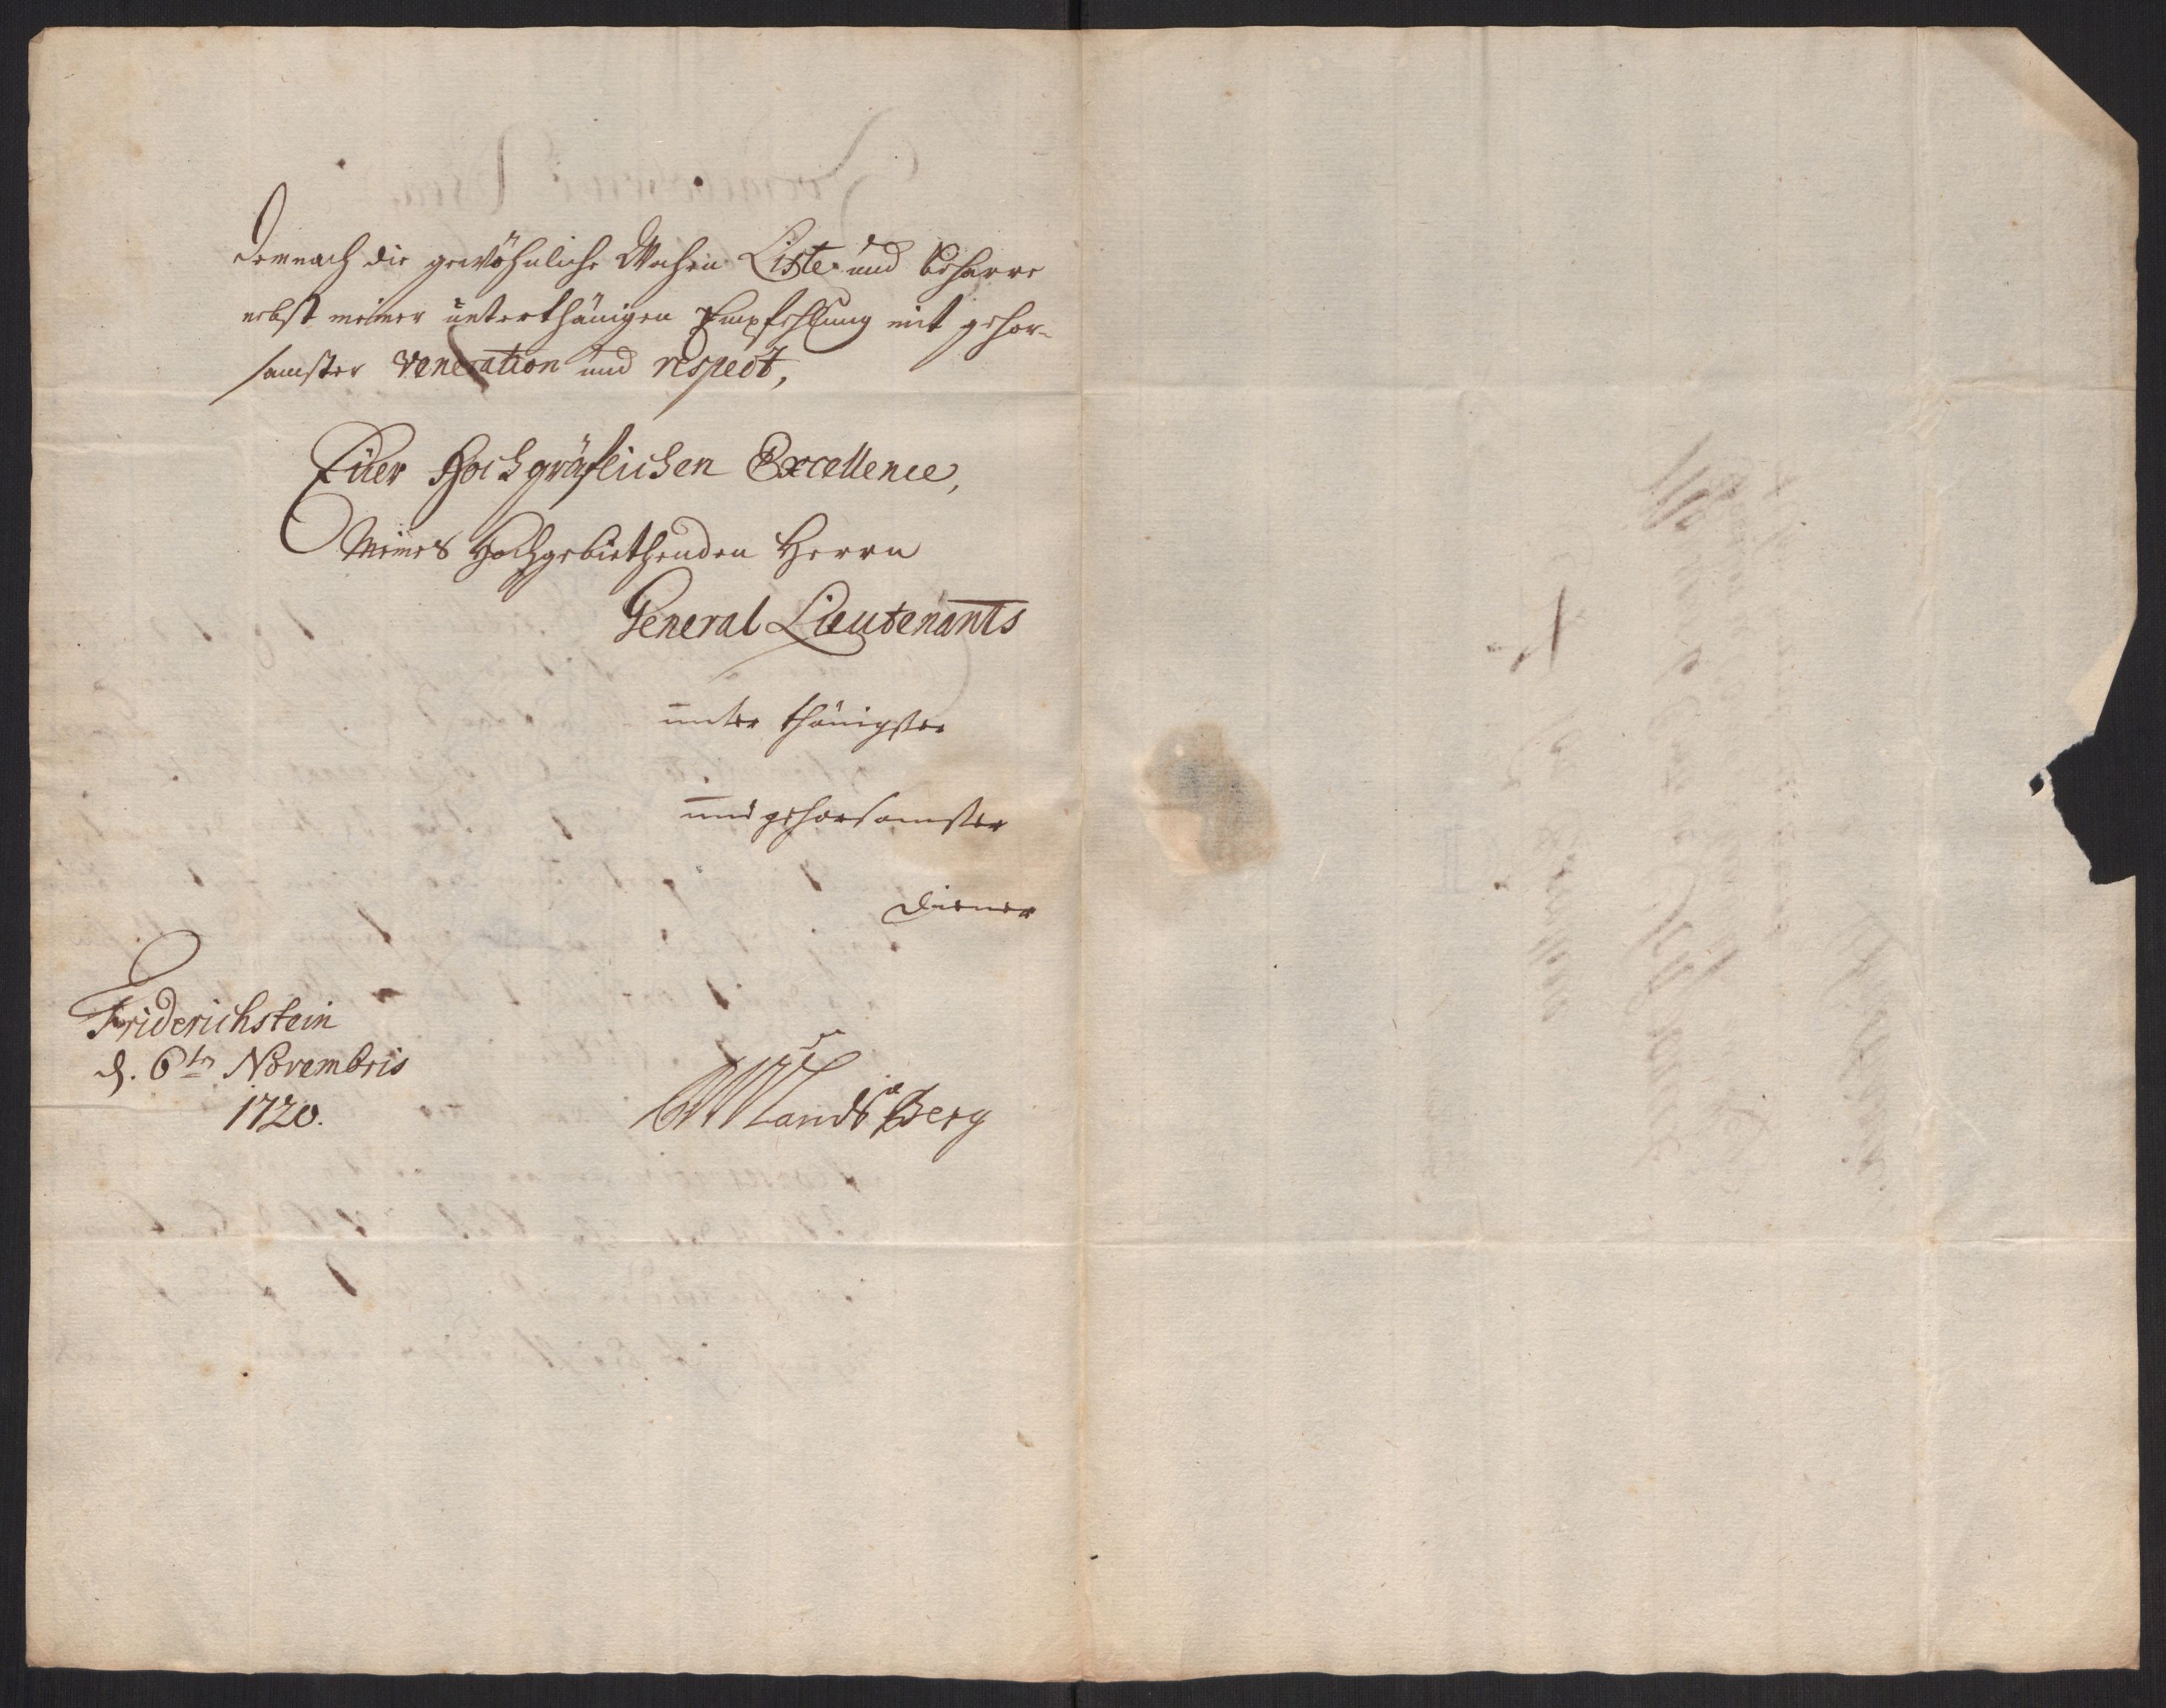 demnach die gewöhnliche Wochen Liste und beharre
nebst meiner unterthänigen Empfehlung mit gehor-
samster veneration und respect,
Euer Hochgräflichen Excellence,
Meines Hochgebiethenden Herrn
General Lieutenants
unterthänigster
und gehorsamster
Diener
Friderichstein
d. 6tn Novembris
1720.
Landsberg